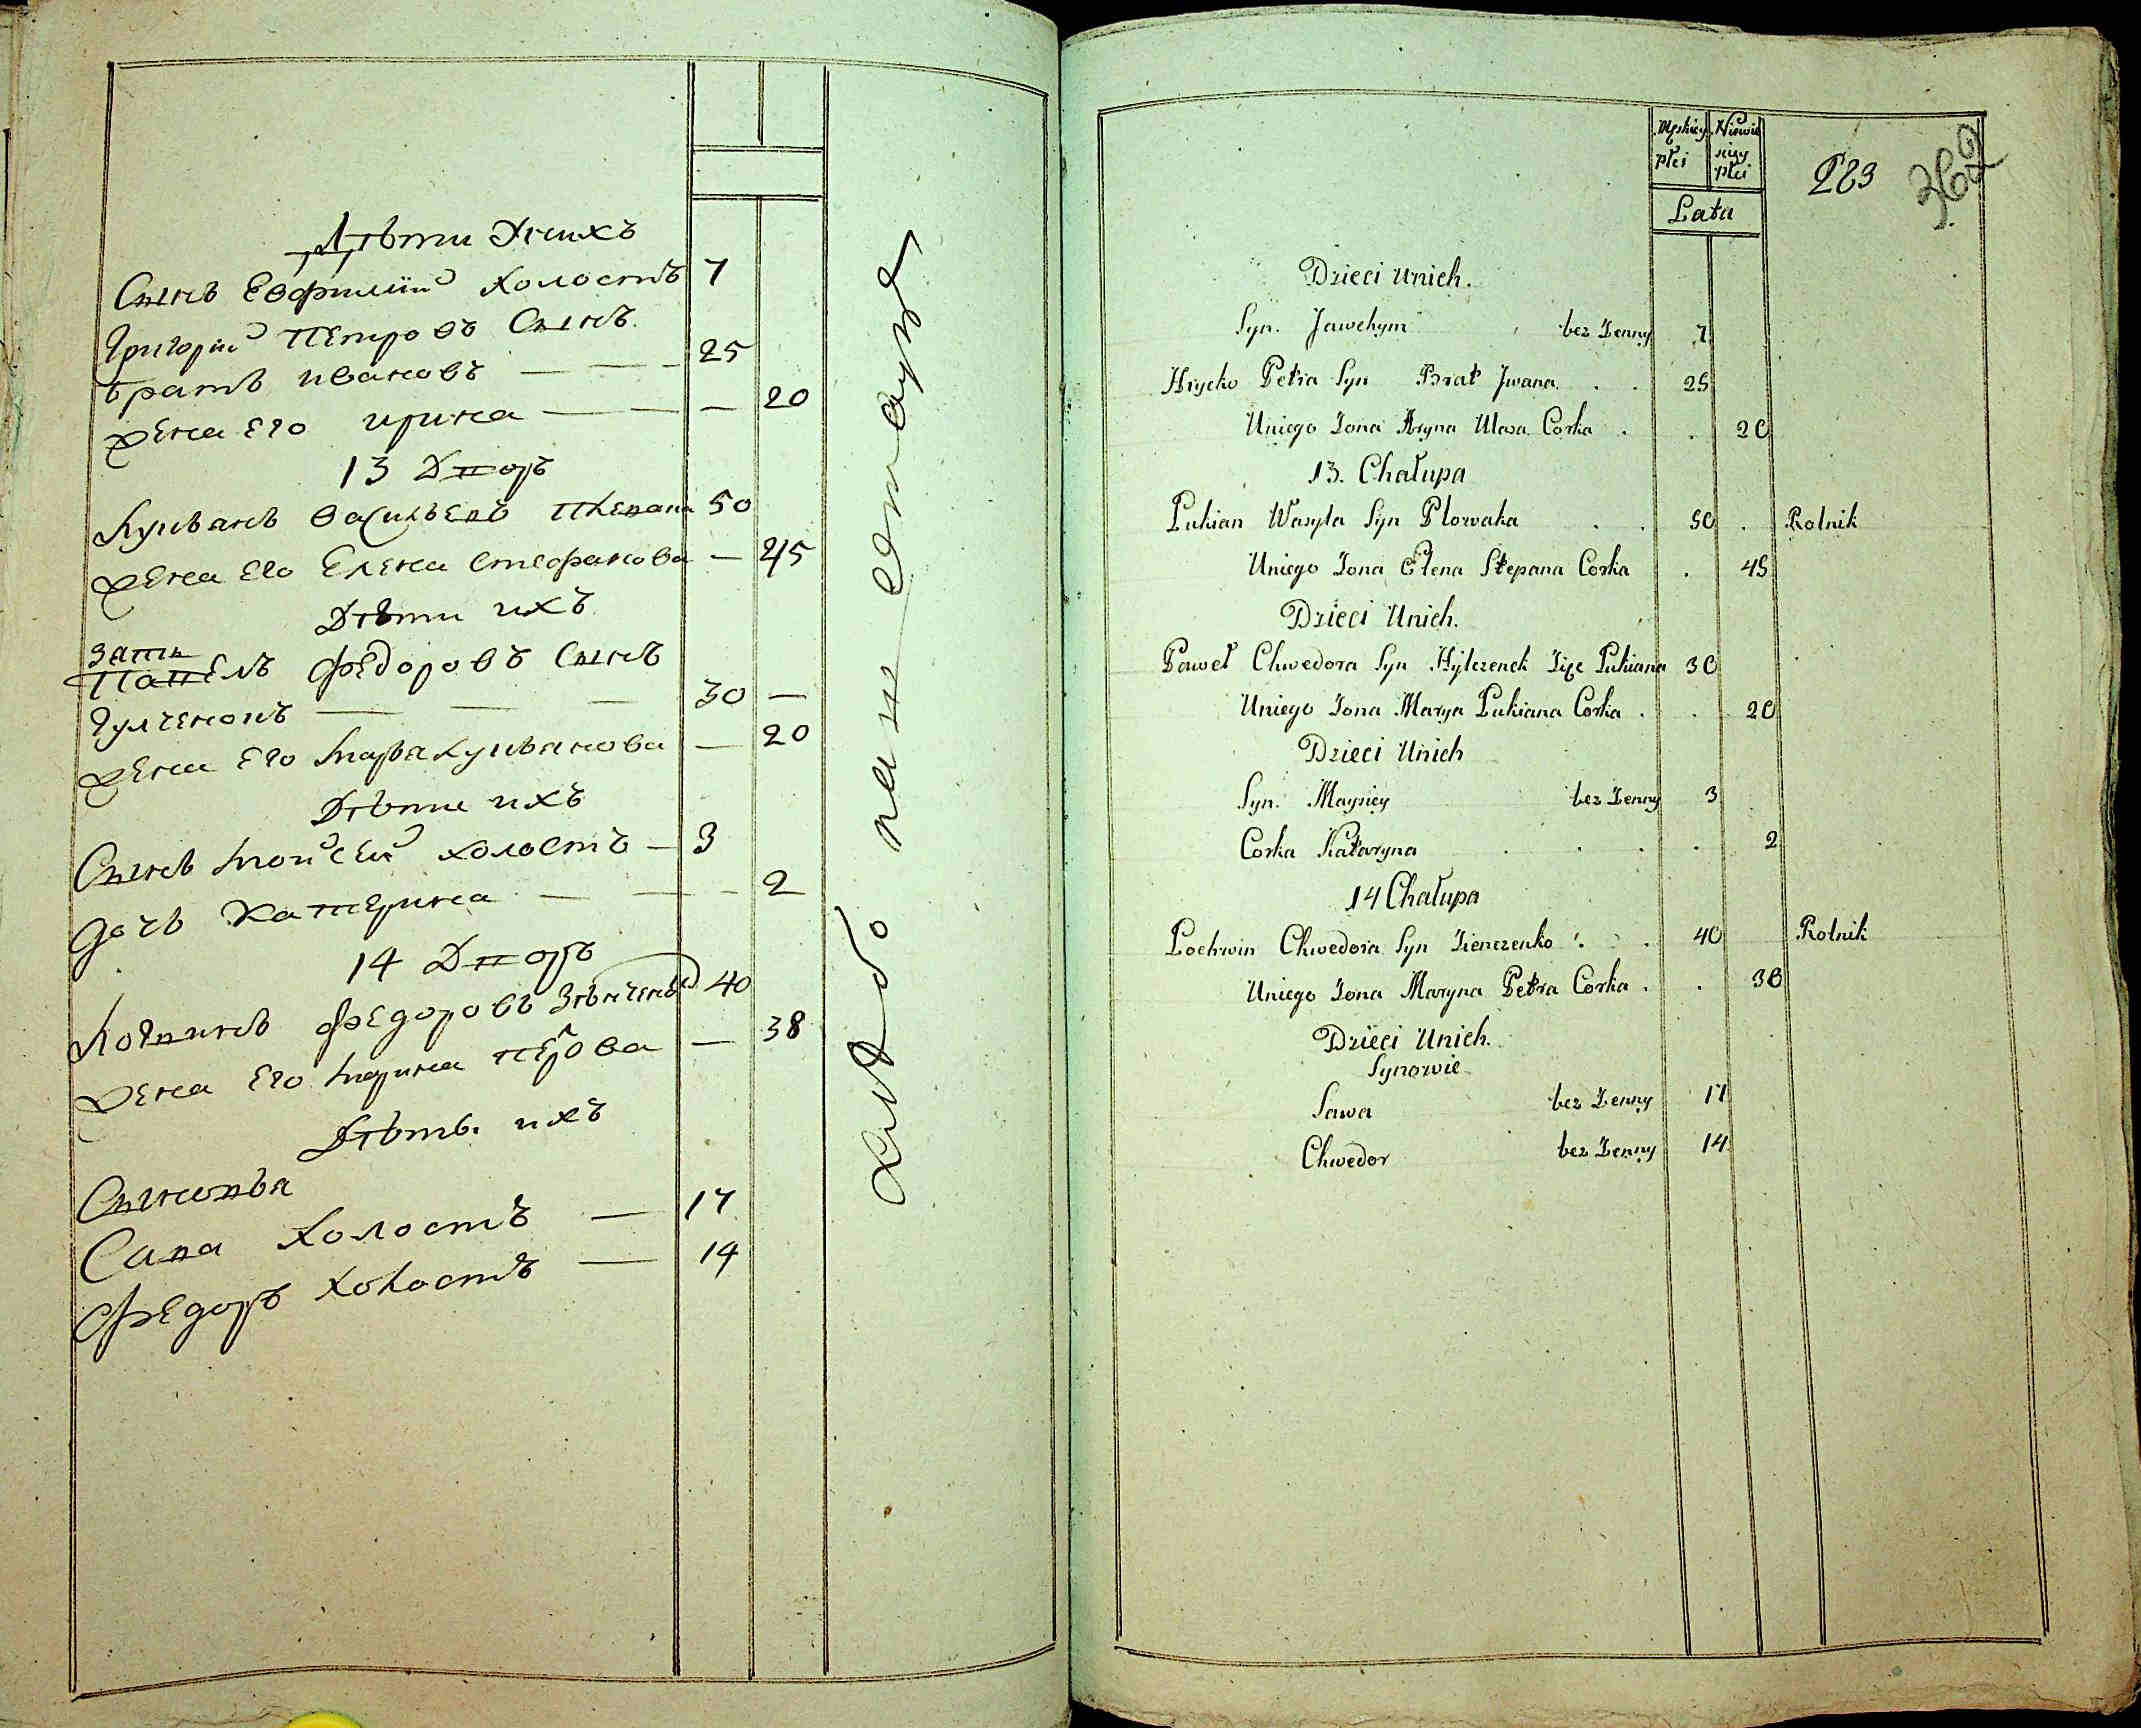 Дѣти Унихъ
Сынъ Евфимій холостъ 7
Григорій Петровъ Сынъ
братъ ивановъ 25
жена Его ирина — 20
13 Дворъ
Лукьянъ Васильевъ 50
жена Его Елена Стефанова — 45
Дѣти ихъ
зять
Павелъ Федоровъ Сынъ
Гулченокъ 30 —
жена Его Марья Лукьянова — 20
Дѣти ихъ
Сынъ Мойсей холостъ — 3
дочь Катерина — 2
14 Дворъ
Логвинъ Федоровъ 40
жена Его Марина — 38
Дѣти ихъ
Сыновья
Сава Холостъ — 17
Федоръ Холостъ — 14
Męskiey płci
Niewieściey płci
Lata
223
362
Dzieci Unich.
Syn. Jawchym bez Żenny 7
Hrycko Petra Syn Brat Jwana . . 25
Uniego Żona Aryna Ułasa Corka . . 20
13. Chałupa
Łukian Wasyla Syn Plowaka . . 50 . Rolnik
Uniego Żona Elena Stepana Corka . 45
Dzieci Unich.
Paweł Chwedora Syn Hylczenek Zięc Łukiana 30
Uniego Żona Marya Łukiana Corka . . 20
Dzieci Unich
Syn. Maysiey bez Żenny 3
Corka Kataryna . . . . 2
14 Chałupa
Łochwin Chwedora Syn Zienczenko . . . 40 Rolnik
Uniego Żona Maryna Petra Corka . . 38
Dzieci Unich.
Synowie
Sawa bez Żenny 17
Chwedor bez Żenny 14